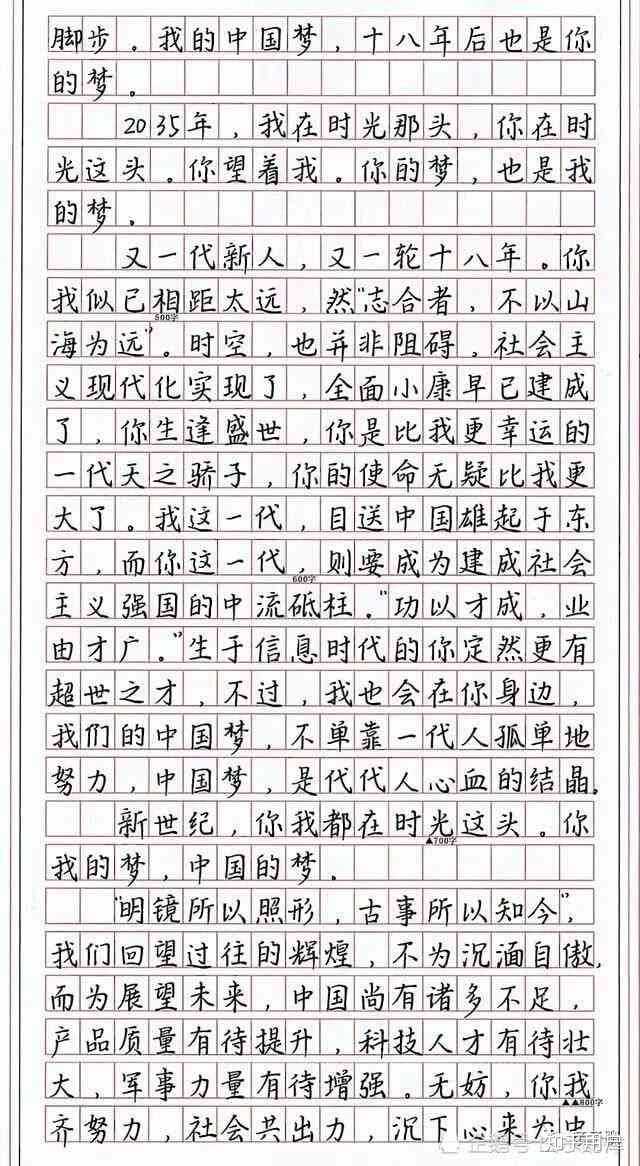 脚步。我的中国梦，十八年后也是你
的梦。
2035年，我在时光那头，你在时
光这头。你望着我。你的梦，也是我
的梦。
又一代新人，又一轮十八年。你
我似已相距太远，然“志合者，不以山
500字
海为远”。时空，也并非阻碍，社会主
义现代化实现了，全面小康早已建成
了，你生逢盛世，你是比我更幸运的
一代天之骄子，你的使命无疑比我更
大了。我这一代，目送中国雄起于东
方，而你这一代，则要成为建成社会
600字
主义强国的中流砥柱。“功以才成，业
由才广。”生于信息时代的你定然更有
超世之才，不过，我也会在你身边，
我们的中国梦，不单靠一代人孤单地
努力，中国梦，是代代人心血的结晶。
新世纪，你我都在时光这头。你
▲700字
我的梦，中国的梦。
“明镜所以照形，古事所以知今”，
我们回望过往的辉煌，不为沉湎自傲，
而为展望未来，中国尚有诸多不足，
产品质量有待提升，科技人才有待壮
大，军事力量有待增强。无妨，你我
▲▲800字
齐努力，社会共出力，沉下心来为中
企鹅号